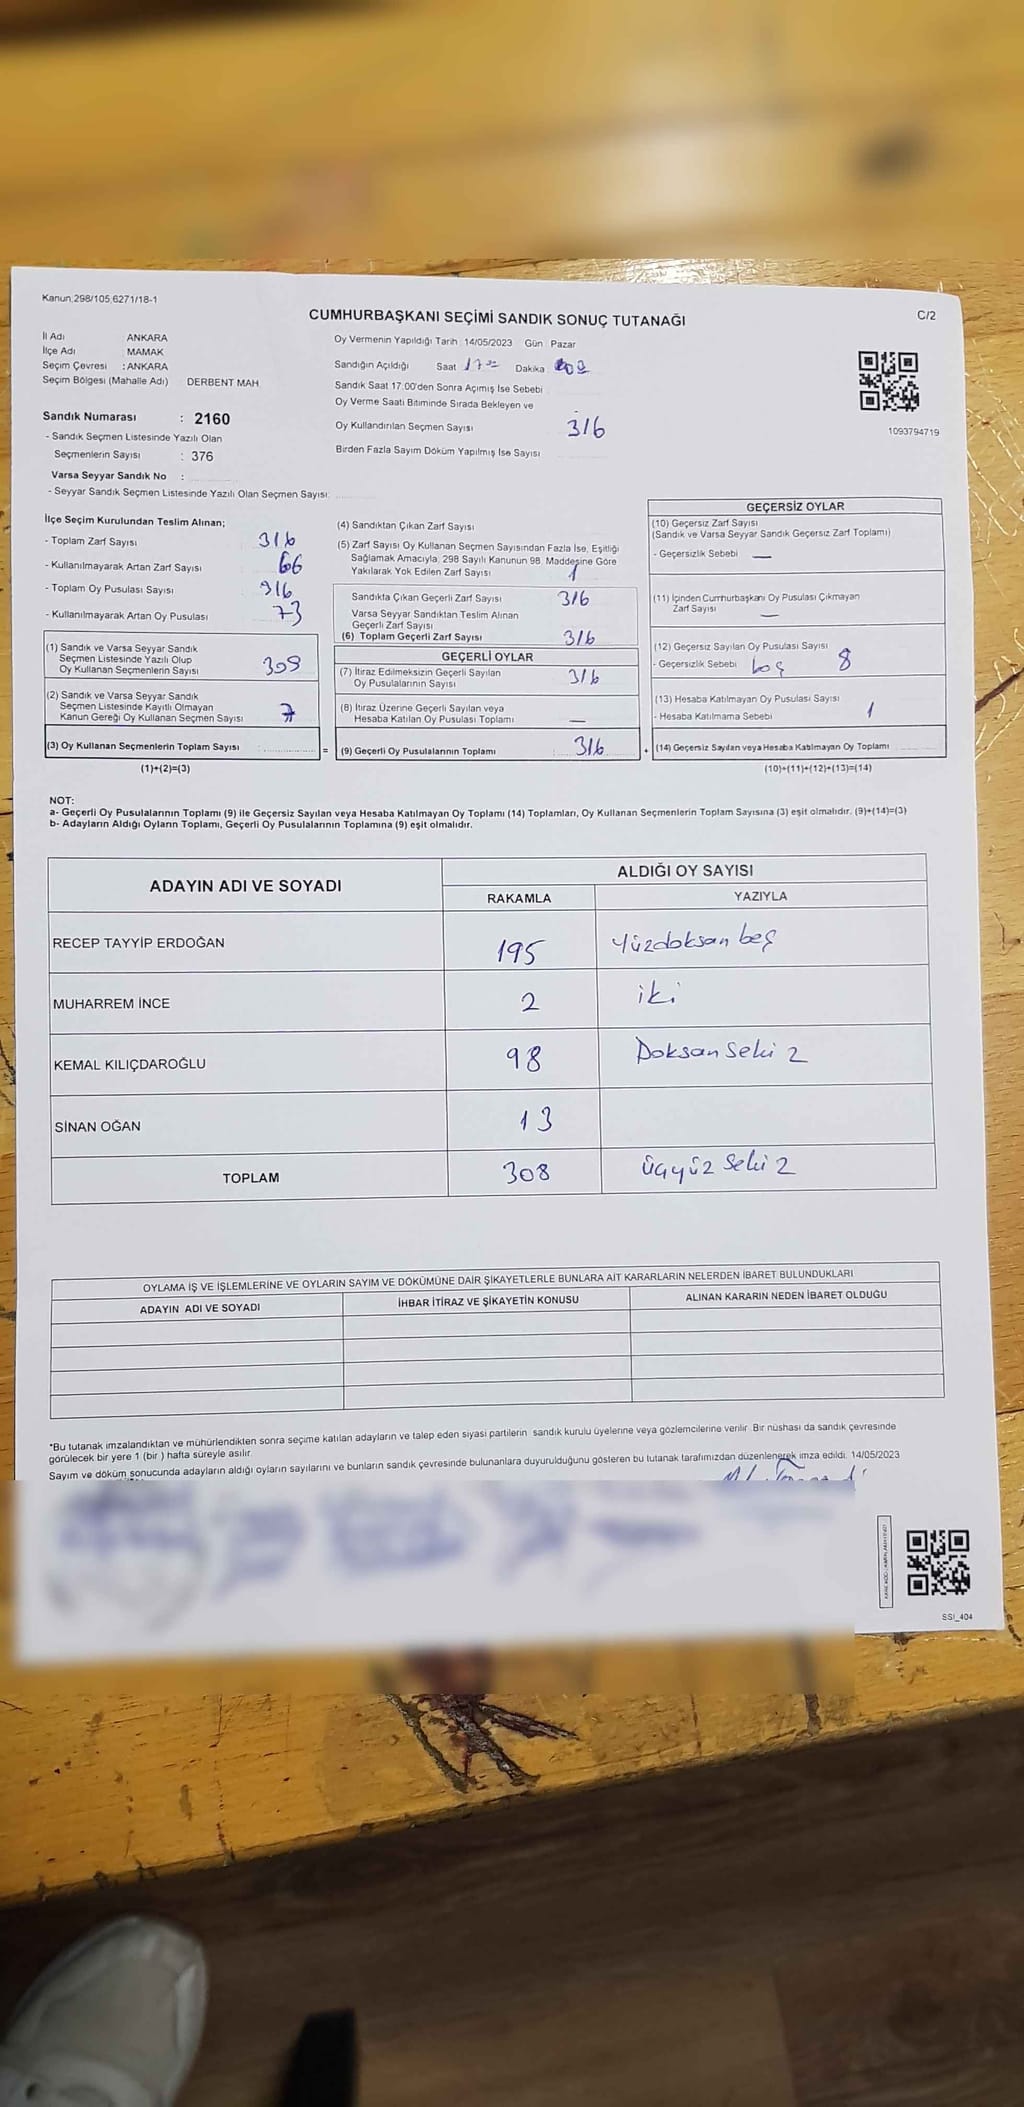 Kanun,298/105,6271/18-1
CUMHURBAŞKANI SEÇİMİ SANDIK SONUÇ TUTANAĞI
C/2
İl Adı ANKARA
İlçe Adı MAMAK
Seçim Çevresi : ANKARA
Seçim Bölgesi (Mahalle Adı) DERBENT MAH
Sandık Numarası : 2160
- Sandık Seçmen Listesinde Yazılı Olan
Seçmenlerin Sayısı : 376
Varsa Seyyar Sandık No :
- Seyyar Sandık Seçmen Listesinde Yazılı Olan Seçmen Sayısı:
Oy Vermenin Yapıldığı Tarih 14/05/2023 Gün Pazar
Sandığın Açıldığı Saat 17 Dakika
Sandık Saat 17:00'den Sonra Açımış İse Sebebi
Oy Verme Saati Bitiminde Sırada Bekleyen ve
Oy Kullandırılan Seçmen Sayısı 316
Birden Fazla Sayım Döküm Yapılmış İse Sayısı
1093794719
İlçe Seçim Kurulundan Teslim Alınan;
- Toplam Zarf Sayısı 316
- Kullanılmayarak Artan Zarf Sayısı 66
- Toplam Oy Pusulası Sayısı 316
- Kullanılmayarak Artan Oy Pusulası 73
(1) Sandık ve Varsa Seyyar Sandık
Seçmen Listesinde Yazılı Olup
Oy Kullanan Seçmenlerin Sayısı 309
(2) Sandık ve Varsa Seyyar Sandık
Seçmen Listesinde Kayıtlı Olmayan
Kanun Gereği Oy Kullanan Seçmen Sayısı 7
(3) Oy Kullanan Seçmenlerin Toplam Sayısı : =
(1)+(2)=(3)
(4) Sandıktan Çıkan Zarf Sayısı
(5) Zarf Sayısı Oy Kullanan Seçmen Sayısından Fazla İse, Eşitliği
Sağlamak Amacıyla, 298 Sayılı Kanunun 98. Maddesine Göre
Yakılarak Yok Edilen Zarf Sayısı 1
Sandıkta Çıkan Geçerli Zarf Sayısı 316
Varsa Seyyar Sandıktan Teslim Alınan
Geçerli Zarf Sayısı
(6) Toplam Geçerli Zarf Sayısı 316
GEÇERLİ OYLAR
(7) İtiraz Edilmeksizin Geçerli Sayılan
Oy Pusulalarının Sayısı 316
(8) İtiraz Üzerine Geçerli Sayılan veya
Hesaba Katılan Oy Pusulası Toplamı —
(9) Geçerli Oy Pusulalarının Toplamı : 316 +
GEÇERSİZ OYLAR
(10) Geçersiz Zarf Sayısı
(Sandık ve Varsa Seyyar Sandık Geçersiz Zarf Toplamı)
- Geçersizlik Sebebi —
(11) İçinden Cumhurbaşkanı Oy Pusulası Çıkmayan
Zarf Sayısı —
(12) Geçersiz Sayılan Oy Pusulası Sayısı 8
- Geçersizlik Sebebi boş
(13) Hesaba Katılmayan Oy Pusulası Sayısı 1
- Hesaba Katılmama Sebebi
(14) Geçersiz Sayılan veya Hesaba Katılmayan Oy Toplamı
(10)+(11)+(12)+(13)=(14)
NOT:
a- Geçerli Oy Pusulalarının Toplamı (9) ile Geçersiz Sayılan veya Hesaba Katılmayan Oy Toplamı (14) Toplamları, Oy Kullanan Seçmenlerin Toplam Sayısına (3) eşit olmalıdır. (9)+(14)=(3)
b- Adayların Aldığı Oyların Toplamı, Geçerli Oy Pusulalarının Toplamına (9) eşit olmalıdır.
ADAYIN ADI VE SOYADI ALDIĞI OY SAYISI
RAKAMLA YAZIYLA
RECEP TAYYİP ERDOĞAN 195 Yüzdoksan beş
MUHARREM İNCE 2 iki
KEMAL KILIÇDAROĞLU 98 Doksan sekiz
SİNAN OĞAN 13
TOPLAM 308 üçyüz sekiz
OYLAMA İŞ VE İŞLEMLERİNE VE OYLARIN SAYIM VE DÖKÜMÜNE DAİR ŞİKAYETLERLE BUNLARA AİT KARARLARIN NELERDEN İBARET BULUNDUKLARI
ADAYIN ADI VE SOYADI İHBAR İTİRAZ VE ŞİKAYETİN KONUSU ALINAN KARARIN NEDEN İBARET OLDUĞU
*Bu tutanak imzalandıktan ve mühürlendikten sonra seçime katılan adayların ve talep eden siyasi partilerin sandık kurulu üyelerine veya gözlemcilerine verilir. Bir nüshası da sandık çevresinde
görülecek bir yere 1 (bir ) hafta süreyle asılır.
Sayım ve döküm sonucunda adayların aldığı oyların sayılarını ve bunların sandık çevresinde bulunanlara duyurulduğunu gösteren bu tutanak tarafımızdan düzenlenerek imza edildi. 14/05/2023
SSI_404